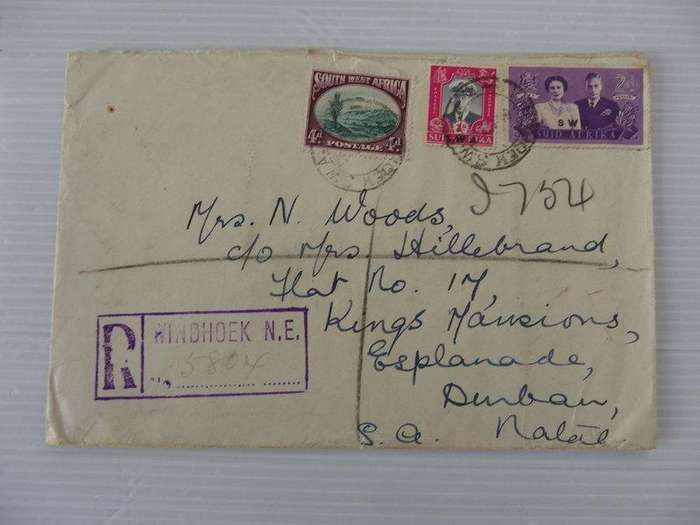 SOUTH WEST AFRICA
4d POSTAGE 4d
SUID AFRIKA
SWA
2d
S W
SUID AFRIKA
Mrs. N. Woods,
c/o Mrs Hillebrand,
Flat No. 17,
Kings Mansions,
Esplanade,
Durban,
S.A. Natal.
R WINDHOEK N.E.
No. 5804